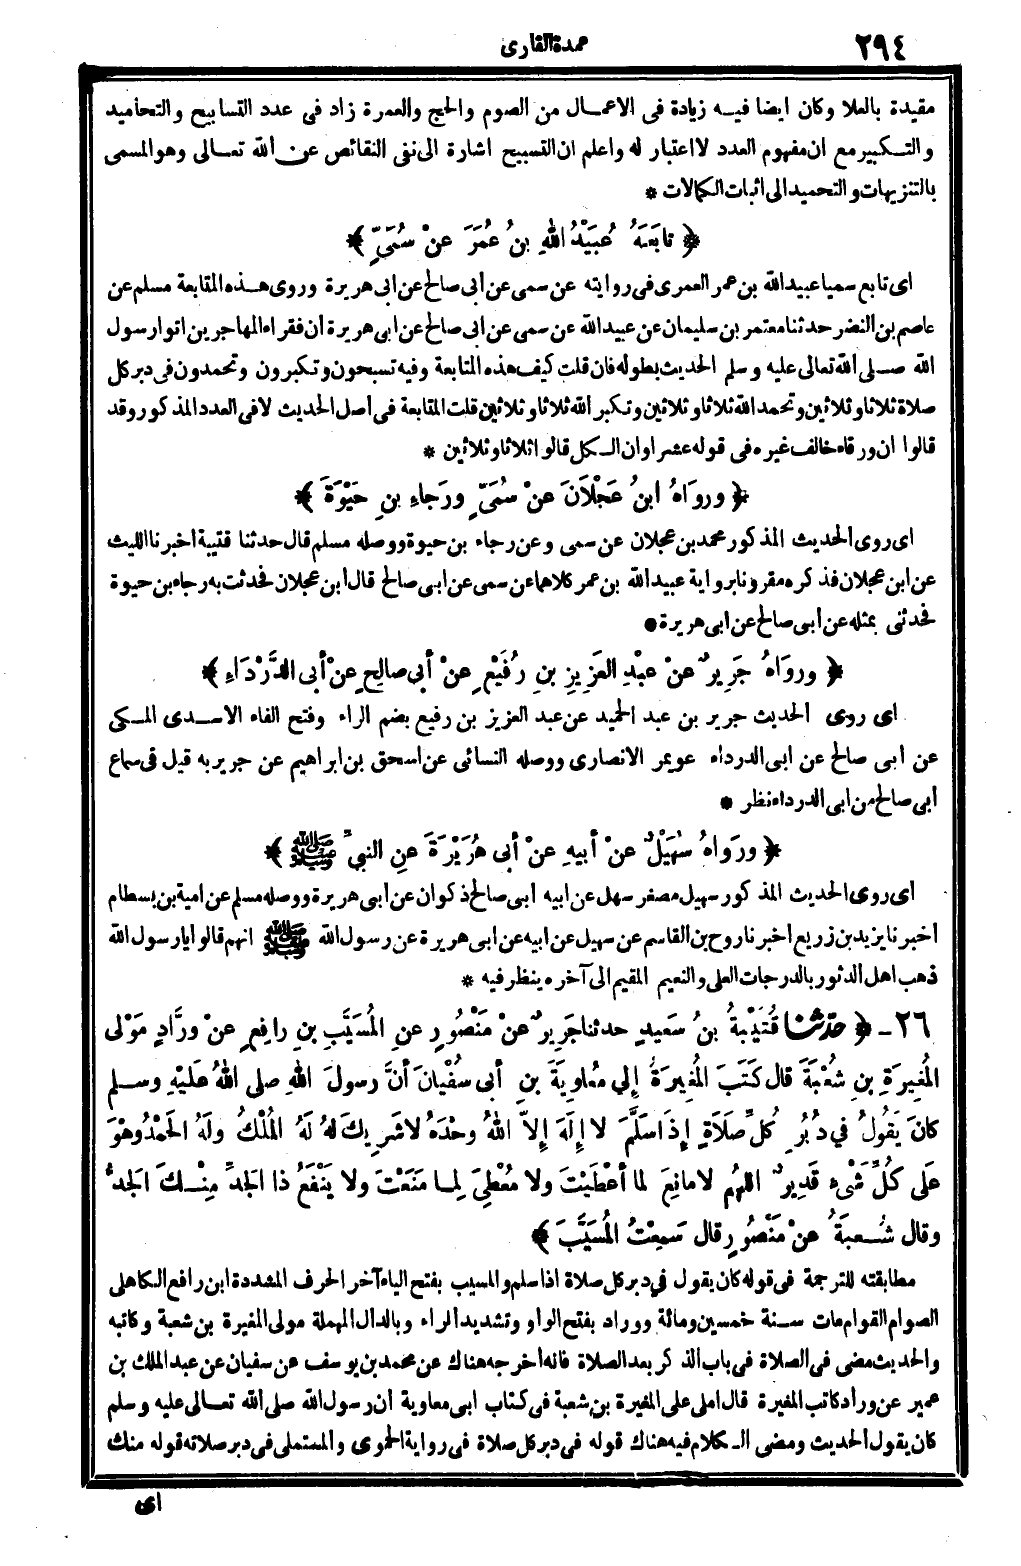 ٢٩٤
عمدة القارى
مقيدة بالعلا وكان ايضا فيه زيادة فى الاعمال من الصوم والحج والعمرة زاد فى عدد التسابيح والتحاميد
والتكبير مع ان مفهوم العدد لا اعتبار له واعلم ان التسبيح اشارة الى نفى النقائص عن الله تعالى وهو المسمى
بالتنزيهات والتحميد الى اثبات الكمالات *
﴿ تابَعَهُ عُبَيْدُ اللهِ بنُ عُمَرَ عنْ سُمَىٍّ ﴾
اى تابع سميا عبيد الله بن عمر العمرى فى روايته عن سمى عن أبى صالح عن ابى هريرة وروى هذه المتابعة مسلم عن
عاصم بن النضر حدثنا معتمر بن سليمان عن عبيد الله عن سمى عن أبى صالح عن ابى هريرة أن فقراء المهاجرين اتوا رسول
الله صلى الله تعالى عليه وسلم الحديث بطوله فان قلت كيف هذه المتابعة وفيه تسبحون وتكبرون وتحمدون فى دبر كل
صلاة ثلاثا وثلاثين وتحمد الله ثلاثا وثلاثين وتكبر الله ثلاثا وثلاثين قلت المتابعة فى أصل الحديث لا فى العدد المذكور وقد
قالوا ان ورقاء خالف غيره فى قوله عشرا وان الكل قالوا ثلاثا وثلاثين *
﴿ ورواهُ ابنُ عَجْلَانَ عنْ سُمَىٍّ ورَجاءِ بنِ حَيْوَةَ ﴾
اى روى الحديث المذكور محمد بن عجلان عن سمى وعن رجاء بن حيوة ووصله مسلم قال حدثنا قتيبة أخبرنا الليث
عن ابن عجلان فذكره مقرونا برواية عبيد الله بن عمر كلاهما عن سمى عن ابى صالح قال ابن عجلان فحدثت به رجاء بن حيوة
فحدثنى بمثله عن أبى صالح عن ابى هريرة *
﴿ ورواهُ جَرِيرٌ عنْ عبْدِ العَزِيزِ بنِ رُفَيْعٍ عنْ أبى صالحٍ عنْ أبى الدَّرْدَاءِ ﴾
اى روى الحديث جرير بن عبد الحميد عن عبد العزيز بن رفيع بضم الراء وفتح الفاء الاسدى المكى
عن ابى صالح عن ابى الدرداء عويمر الانصارى ووصله النسائى عن اسحق بن ابراهيم عن جرير به قيل فى سماع
أبى صالح من ابى الدرداء نظر *
﴿ ورواهُ سُهَيْلٌ عنْ أبيهِ عنْ أبى هُرَيْرَةَ عنِ النبىِّ ﷺ ﴾
اى روى الحديث المذكور سهيل مصغر سهل عن ابيه ابى صالح ذكوان عن ابى هريرة ووصله مسلم عن امية بن بسطام
اخبرنا يزيد بن زريع اخبرنا روح بن القاسم عن سهيل عن ابيه عن ابى هريرة عن رسول الله ﷺ انهم قالوا يا رسول الله
ذهب اهل الدثور بالدرجات العلى والنعيم المقيم الى آخره ينظر فيه *
٢٦ - ﴿ حدّثنا قُتَيْبَةُ بنُ سَعِيدٍ حدثنا جَرِيرٌ عنْ مَنْصُورٍ عنِ المُسَيَّبِ بنِ رافِعٍ عنْ ورَّادٍ مَوْلى
المُغِيرَةِ بنِ شُعْبَةَ قال كَتَبَ المُغِيرَةُ إلى مُعَاوِيَةَ بنِ أبى سُفْيانَ أنَّ رسولَ اللهِ صلى اللهُ عَلَيْهِ وسلم
كانَ يَقُولُ فى دُبُرِ كُلِّ صَلَاةٍ إذَا سَلَّمَ لا إلَهَ إلاَّ اللهُ وحْدَهُ لاشَرِيكَ لهُ لهُ المُلْكُ ولَهُ الحَمْدُ وهْوَ
عَلى كُلِّ شَىْءٍ قَدِيرٌ اللهُم لامانِعَ لما أعْطَيْتَ ولا مُعْطِىَ لِمـا مَنَعْتَ ولا يَنْفَعُ ذا الجَدِّ مِنْـكَ الجَدُّ
وقال شُـعبَةُ عنْ مَنْصُورٍ قال سَمِعْتُ المُسَيَّبَ ﴾
مطابقته للترجمة فى قوله كان يقول فى دبر كل صلاة اذا سلم والمسيب بفتح الياء آخر الحرف المشددة ابن رافع الكاهلى
الصوام القوام مات سنة خمسين ومائة ووراد بفتح الواو وتشديد الراء وبالدال المهملة مولى المغيرة بن شعبة وكاتبه
والحديث مضى فى الصلاة فى باب الذكر بعد الصلاة فانه أخرجه هناك عن محمد بن يوسف عن سفيان عن عبد الملك بن
عمير عن وراد كاتب المغيرة قال املى على المغيرة بن شعبة فى كتاب ابى معاوية أن رسول الله صلى الله تعالى عليه وسلم
كان يقول الحديث ومضى الكلام فيه هناك قوله فى دبر كل صلاة فى رواية الحموى والمستملى فى دبر صلاته قوله منك
اى